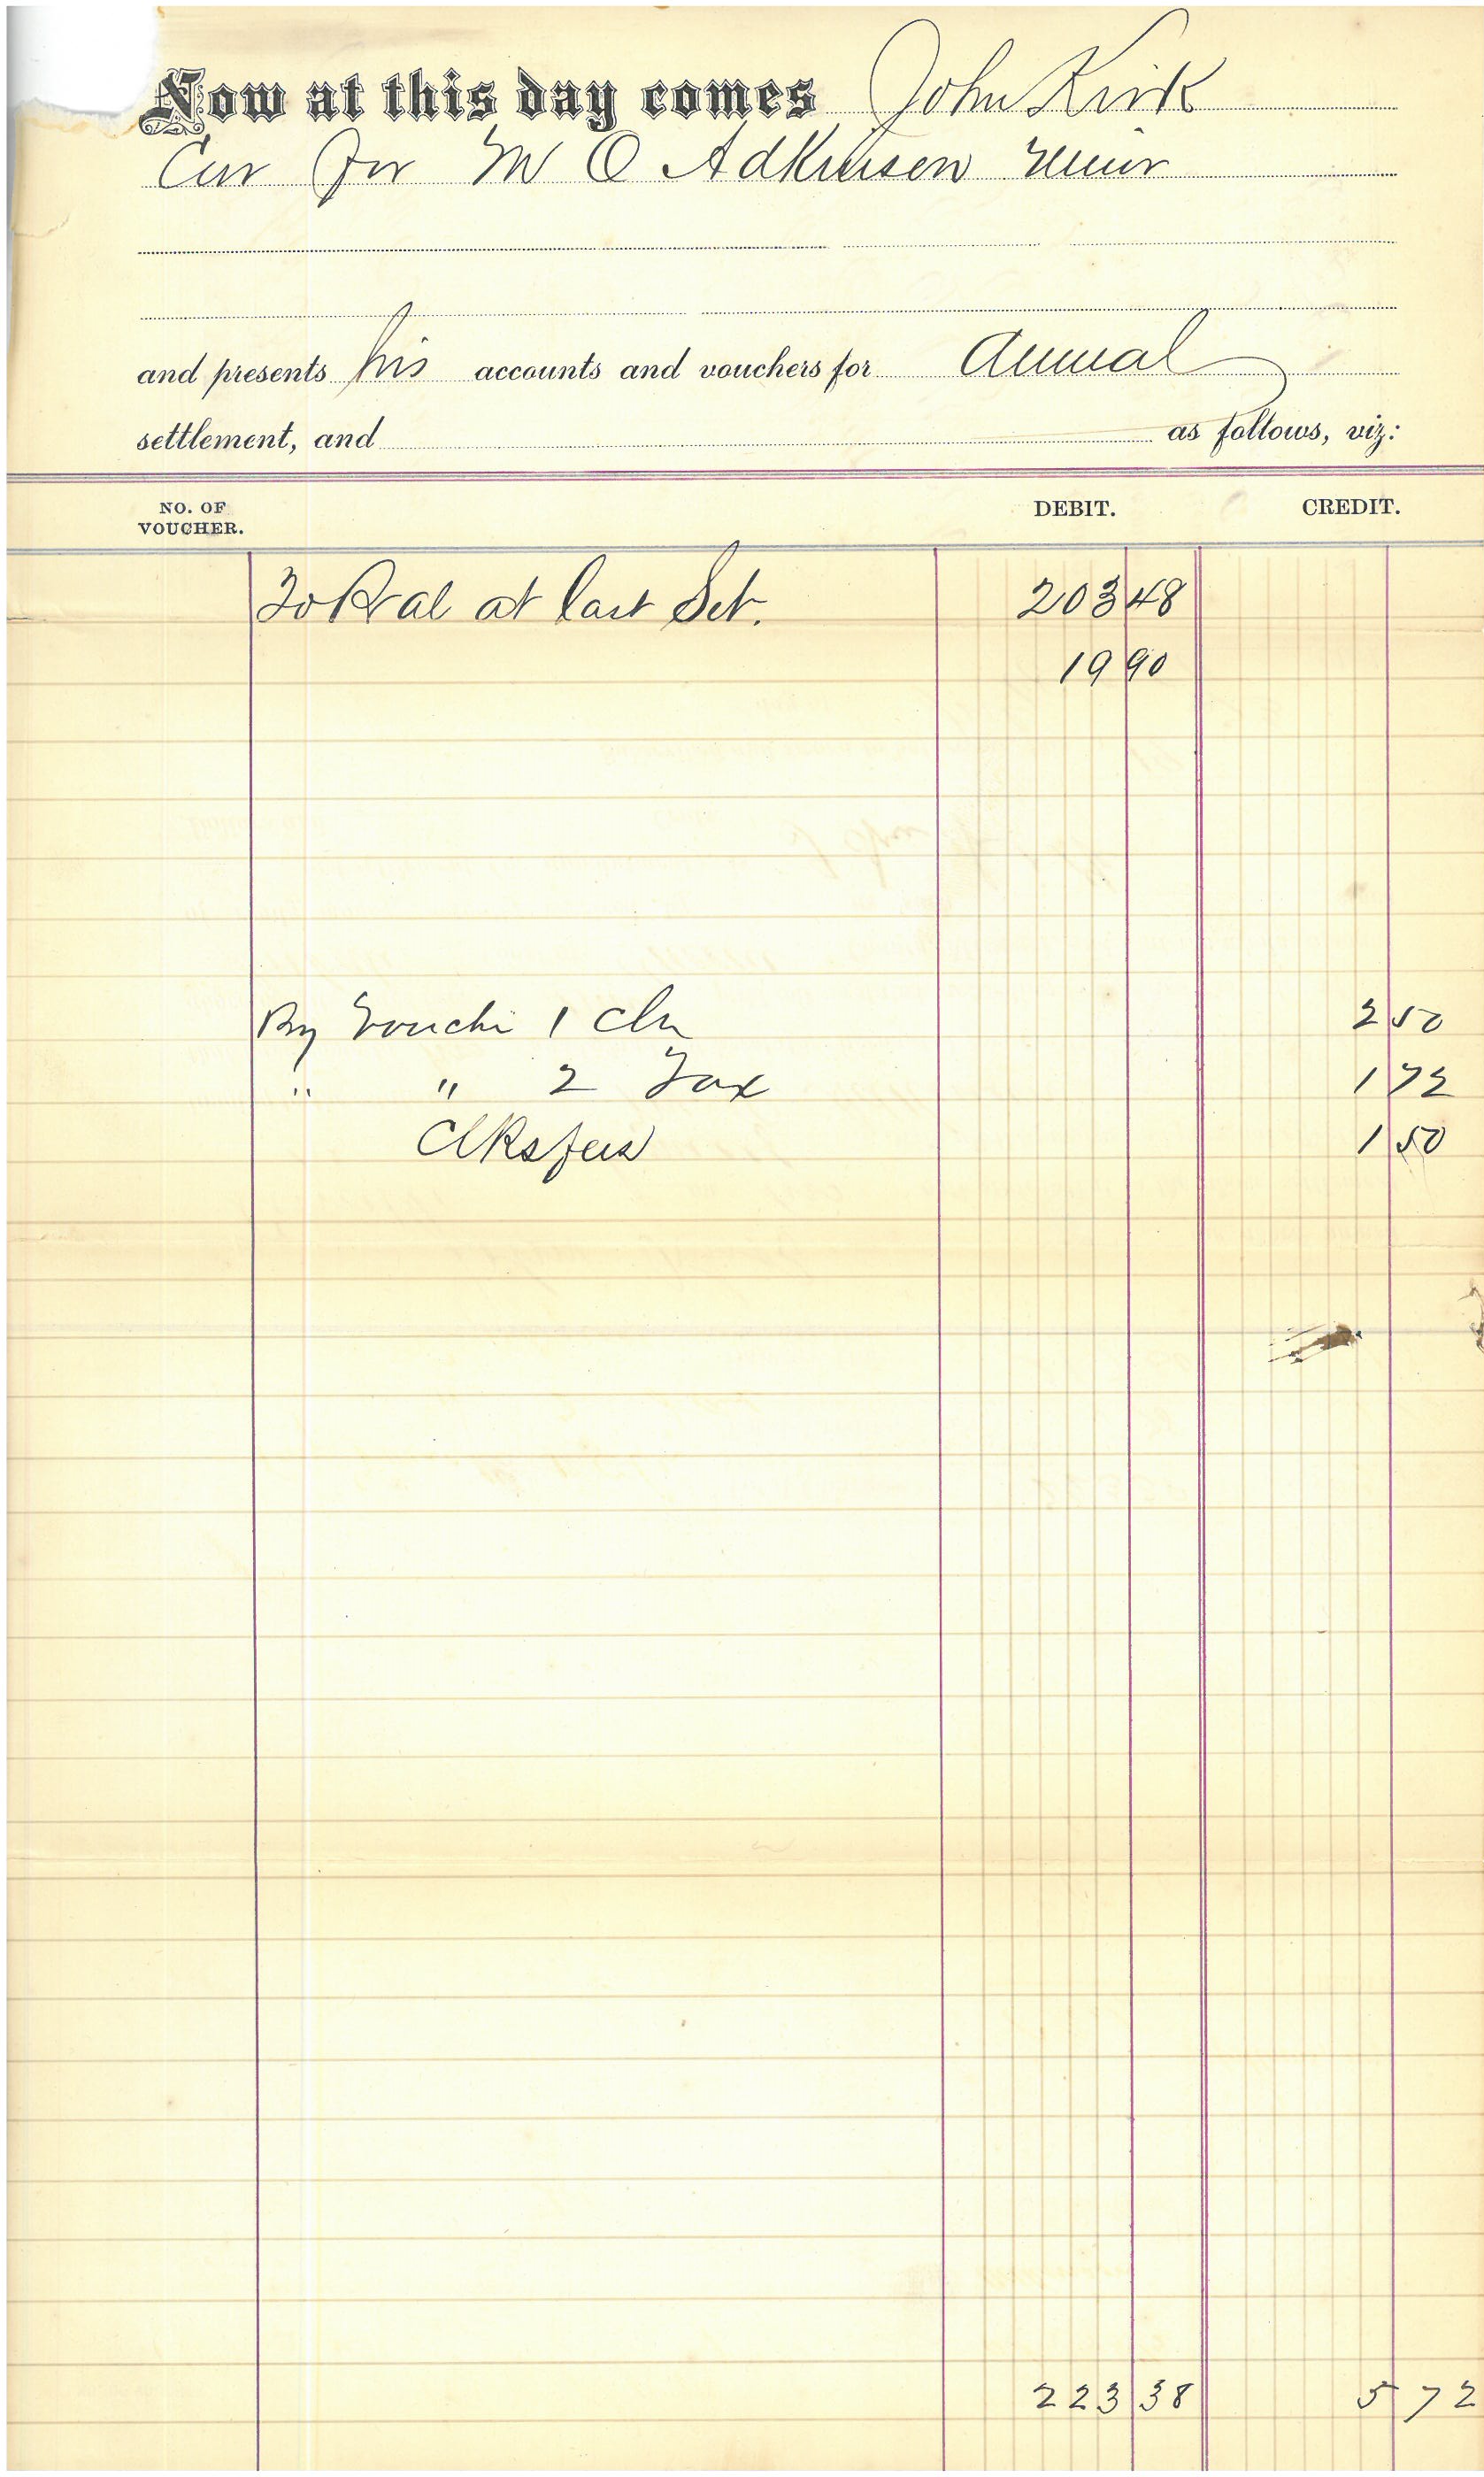 Now at this day comes John Kirk
Cur for M O Adkinson Minor
and presents his accounts and vouchers for Annual
settlement, and as follows, viz:
NO. OF VOUCHER. DEBIT. CREDIT.
To Bal at last Set. 203 48
19 90
By Vouch 1 Clk 2 50
" " 2 Tax 1 72
Clks fees 1 50
223 38 5 72